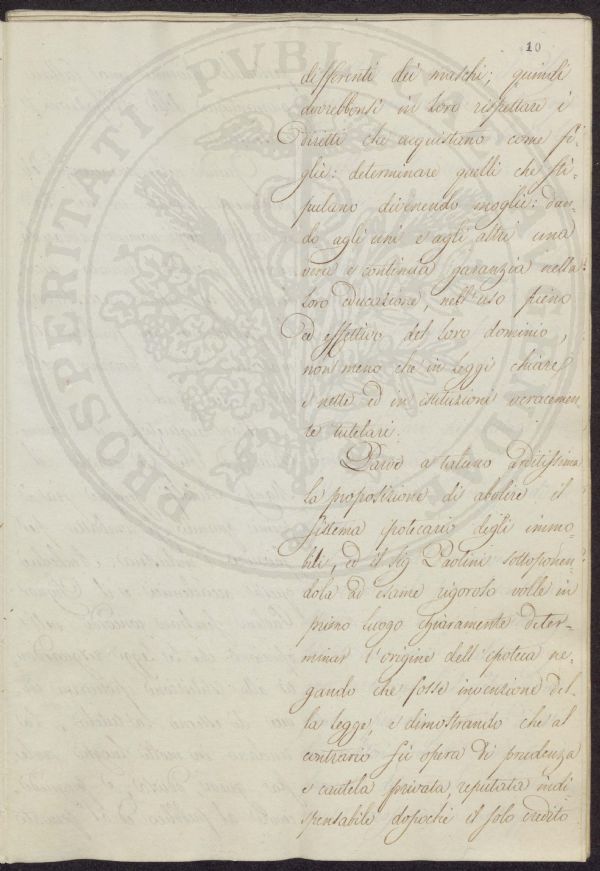 10
differenti dei maschi; quindi
dovrebbonsi in loro rispettare i
diritti che acquistano come fi-
glie: determinare quelli che sti-
pulano divenendo moglie: dan-
do agli uni e agli altri una
vera e continua garanzia nella
loro educazione, nell'uso pieno
ed effettivo del loro dominio,
non meno che in leggi chiare
e nette ed in istituzioni veracemen
te tutelari.
Parve a taluno arditissima
la proposizione di abolire il
sistema ipotecario degli immo-
bili, ed il Sig Paolini sottoponen-
dola ad esame rigoroso volle in
primo luogo chiaramente deter-
minar l'origine dell'ipoteca ne-
gando che fosse invenzione del-
la legge, e dimostrando che al
contrario fù opera di prudenza
e cautela privata, reputata indi-
spensabile dopoché il solo credito
PROSPERITATI PVBLICAE AVGENDAE